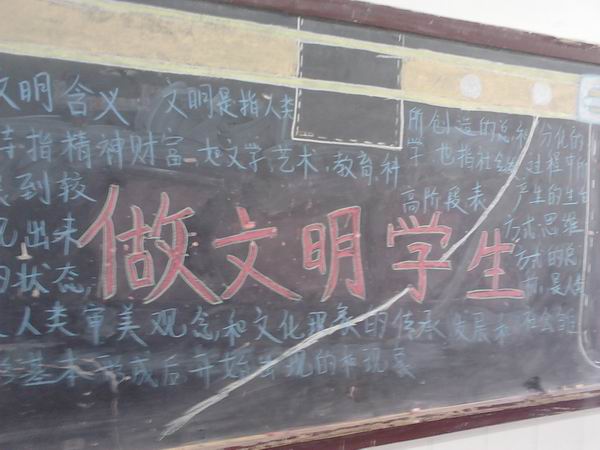 文明含义 文明是指人类
所创造的总和 分化的
特指精神财富,如文学,艺术,教育,科
学,也指社会 过程中所
展到较
高阶段表 产生的生
现出来
方式思维
的状态,
方式的
做文明学生
人类审美观念,和文化现象的传承,发展和
基本形成后开始出现的一种现象